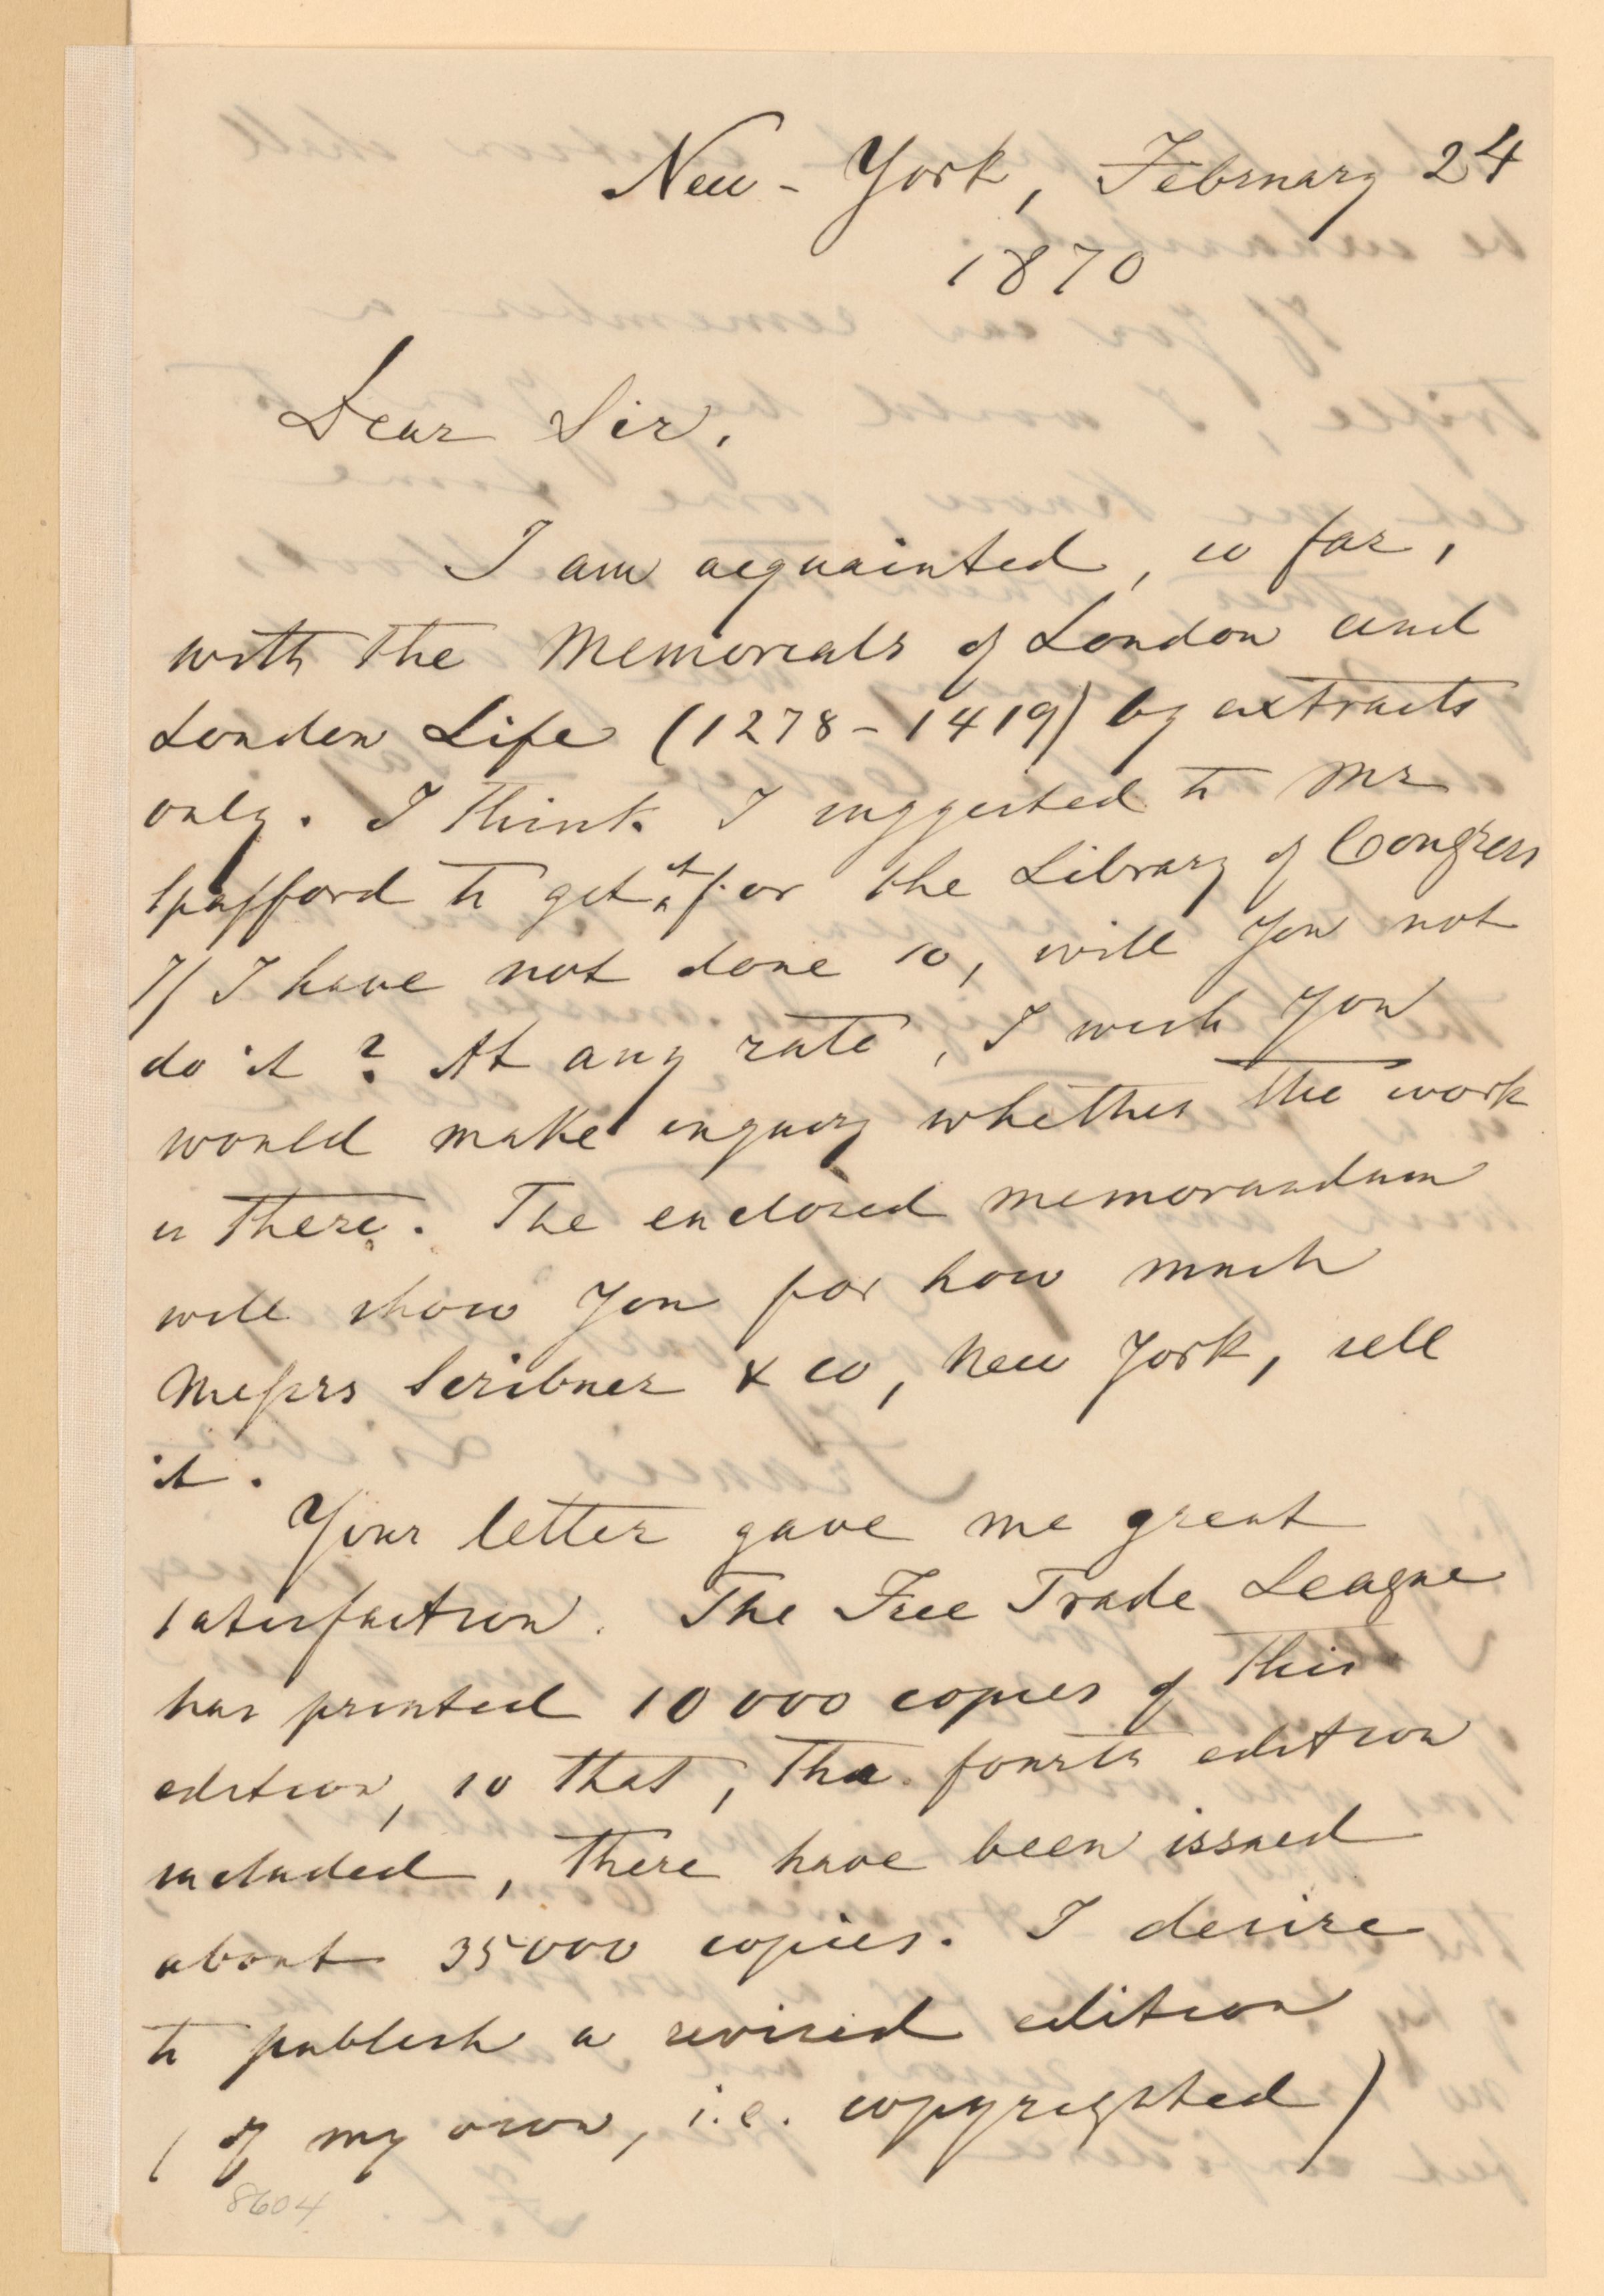 New-York, February 24
1870
Dear Sir,
I am acquainted, so far,
with the Memorials of London and
London Life (1278-1419) by extracts
only. I think I suggested to Mr
Spafford to get it for the Library of Congress
If I have not done so, will you not
do it? At any rate, I wish you
would make inquiry whether the work
is there. The enclosed memorandum
will show you for how much
Messrs Scribner & co, New York, sell
it.
Your letter gave me great
satisfaction. The Free Trade League
has printed 10000 copies of this
edition, so that, the fourth edition
included, there have been issued
about 35000 copies. I desire
to publish a revised edition
(of my own, i.e. copyrighted)
8604